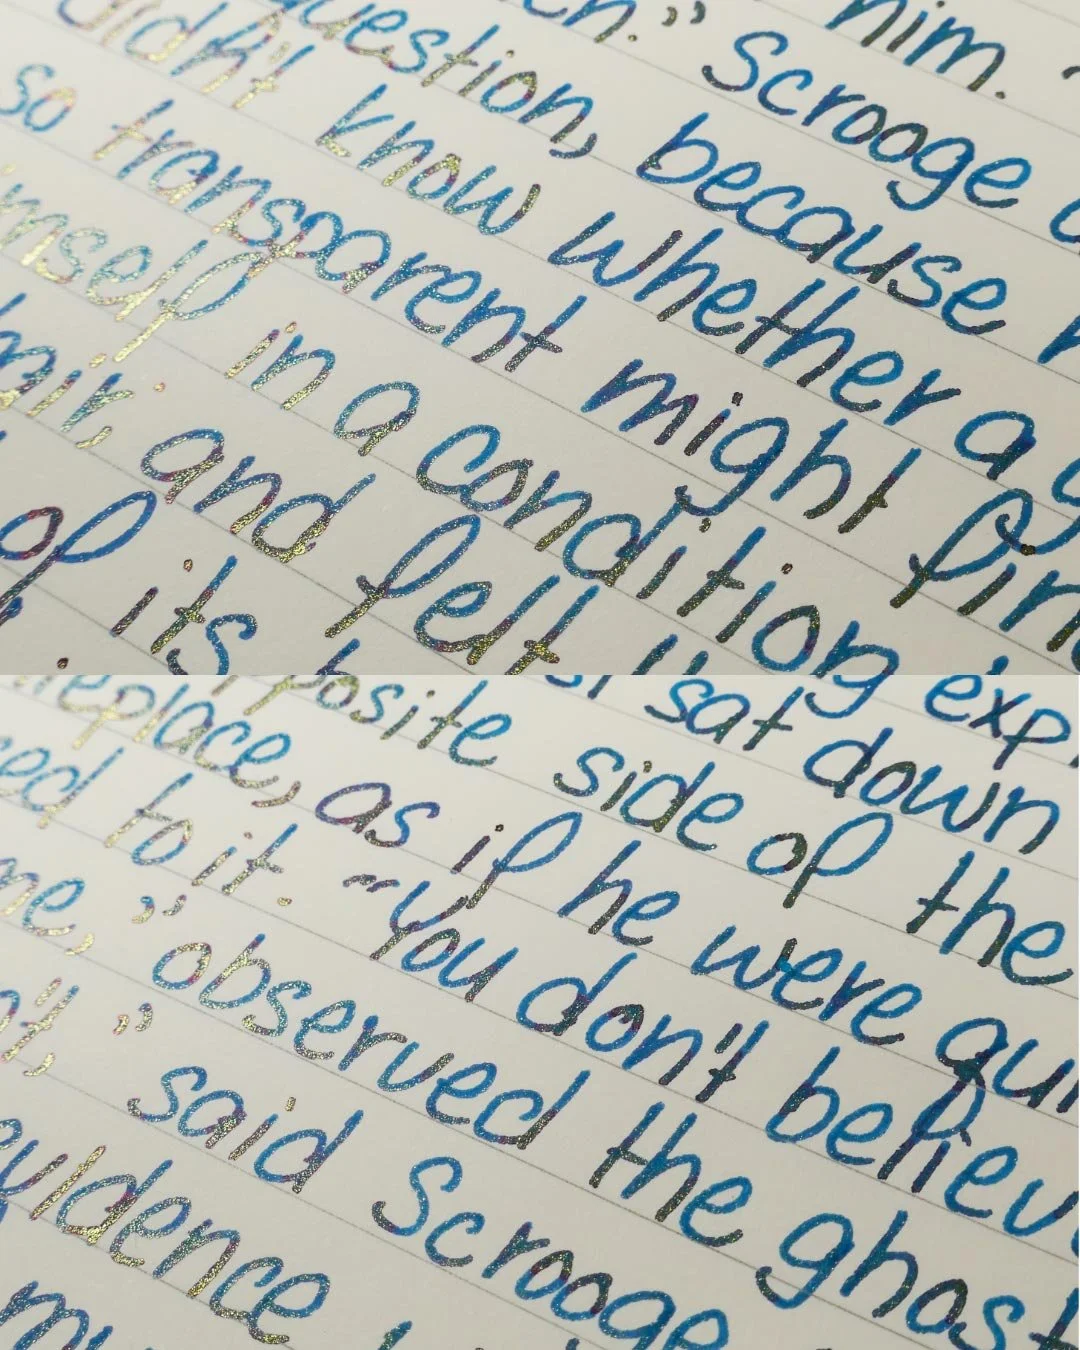 him.
.” Scrooge
question, because
didn't know whether a
so transparent might fin
imself in a condition
hair, and felt
of its
exp
sat down
posite side of the
replace, as if he were qui
sed to it. “You don't believ
me,” observed the ghost
n't,” said Scrooge
evidence